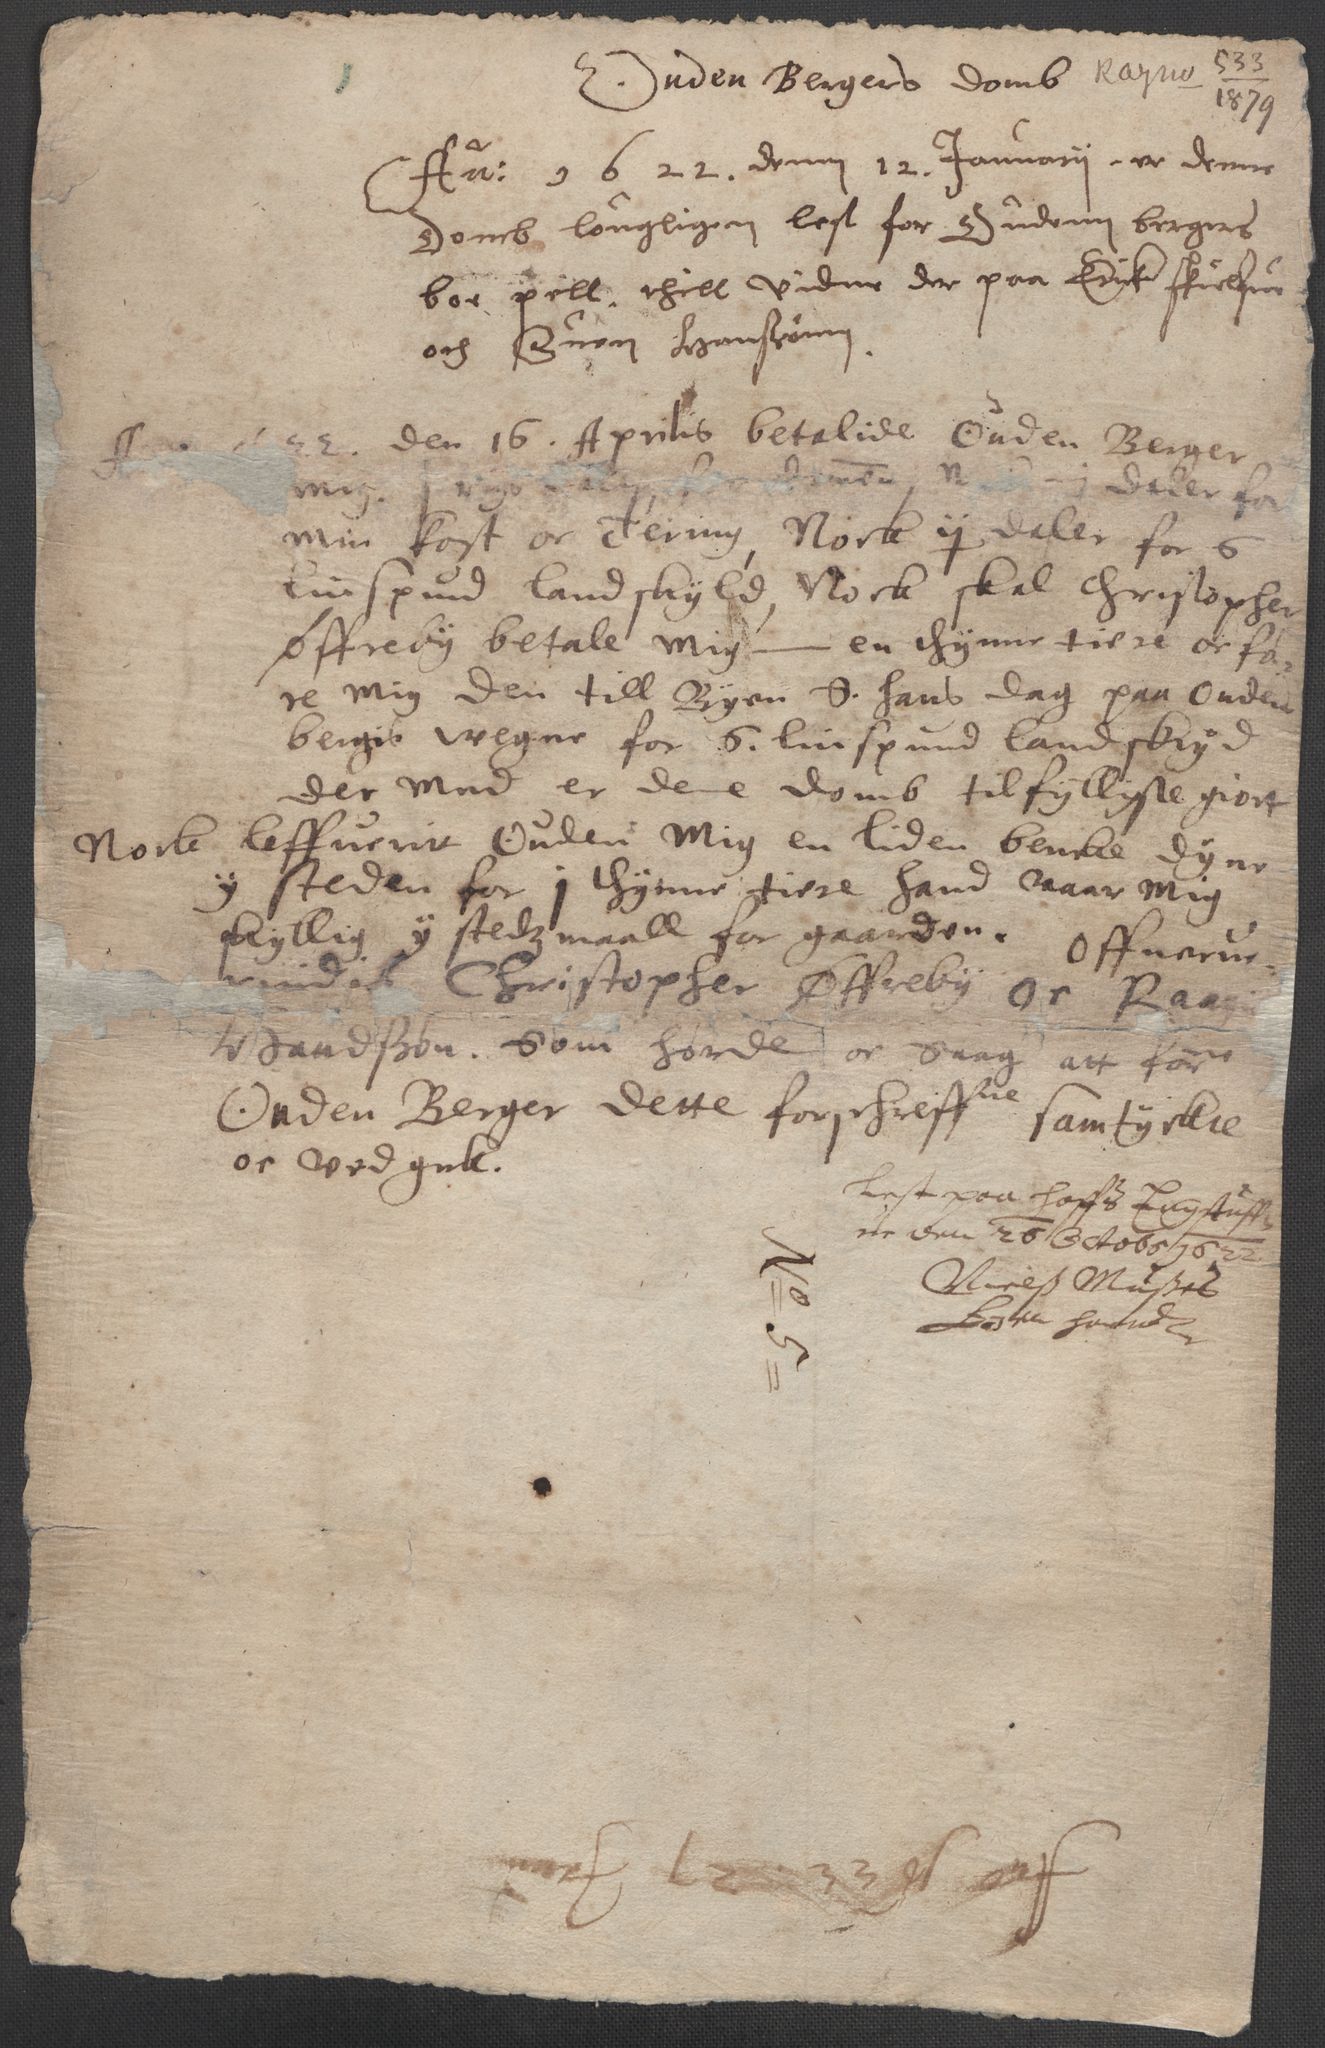 Ouden Bergers domb
Ragno 533
1879
Aar: 1622. denn 12. Januarij er denne
Domb lougligen lest for Oudenn bergers
boe pell. thill vidne der paa Erick
och Suen Hansønn.
den 16. Aprilis betalide Ouden Berger
mig. daler for
min kost oc tering, Nock ij daler for 6
linspund landskyld, Nock skal Christopher
Øffreby betale mig en thynne tiere oc fø-
re mig den till Byen S. Hans dag paa Ouden
bergis vegne for 6. linspund landskyld
der med er denne domb tilfyllyste giort
Nock leffuerit Ouden mig en liden bencke dyne
y steden for j thynne tiere hand vaar mig
skyllig y stedz maall for gaarden. Offuerue-
rindis Christopher Øffreby oc Raagn
som hørde oc saag att forne
Ouden Berger dette forschreffne samtyckte
oc ved gick.
Lest paa Hoffs Tingstuff-
ue den 26 Octobr 1622
Nielß Mußes
Egen haandt
No. 5
Ao 1633 27 Janu